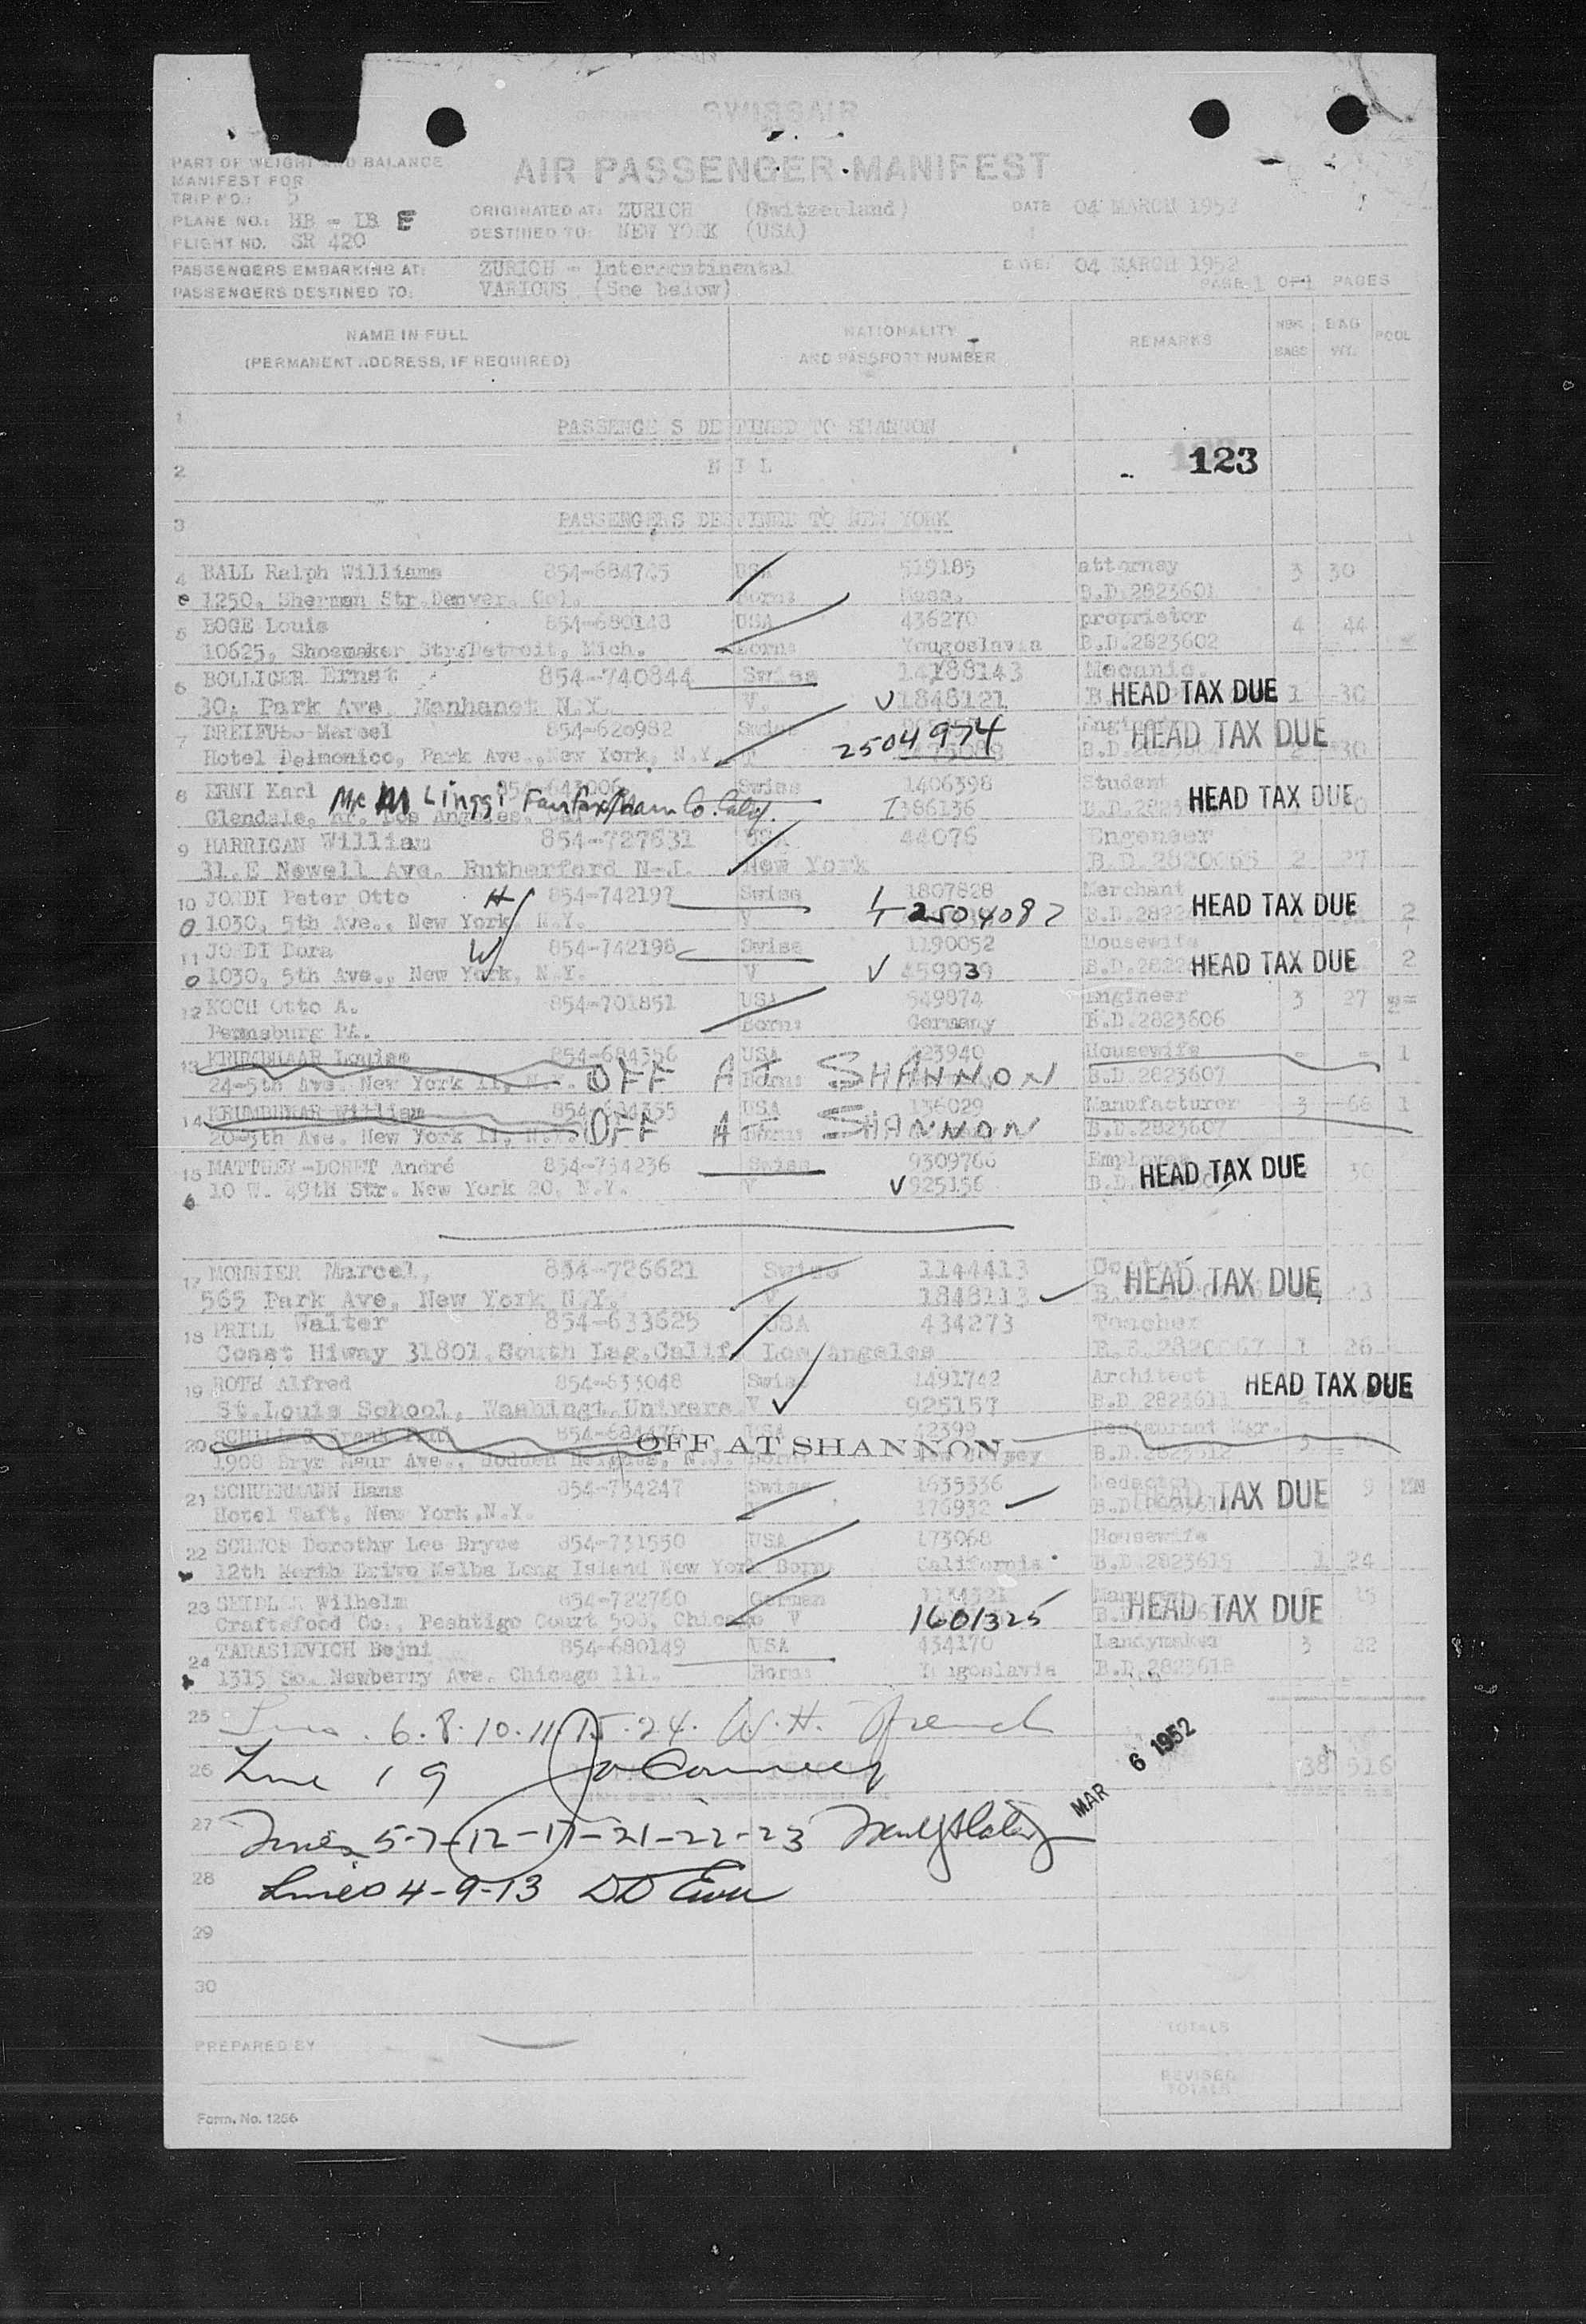 SWISSAIR
PART OF WEIGHT AND BALANCE
MANIFEST FOR
AIR PASSENGER MANIFEST
TRIP NO.: 5
PLANE NO.: HB - IB E
ORIGINATED AT: ZURICH (Switzerland) DATE 04 MARCH 1952
FLIGHT NO. SR 420
DESTINED TO: NEW YORK (USA)
PASSENGERS EMBARKING AT: ZURICH - Intercontinental DATE: 04 MARCH 1952
PASSENGERS DESTINED TO: VARIOUS (See below) PAGE 1 OF 1 PAGES
NAME IN FULL NATIONALITY REMARKS NBR BAG POOL
(PERMANENT ADDRESS, IF REQUIRED) AND PASSPORT NUMBER BAGS WT.
1 PASSENGE S DE TINED TO SHANNON
2 N I L 123
3 PASSENGERS DESTINED TO NEW YORK
4 BALL Ralph Williams 854-684745 USA 519185 attorney 3 30
1250, Sherman Str.Denver, Col. Born: B.D.2823601
5 BOGE Louis 854-680148 USA 436270 proprietor 4 44
10625, Shoemaker Str.Detroit, Mich. Born: Yougoslavia B.D.2823602
6 BOLLIGER Ernst 854-740844 Swiss 14188143 Mecanic.
30, Park Ave, Manhanet N.Y. V. V 1848121 HEAD TAX DUE 1 30
7 DREIFUSS Marcel 854-620982 Swiss 2504974 HEAD TAX DUE
Hotel Delmonico, Park Ave.,New York, N.Y. 30
8 ERNI Karl 854-643006 Swiss 1406398 Student
Mr M Linggi Fairfax Calif.
Glendale, nr. Los Angeles, I 386136 HEAD TAX DUE
9 HARRIGAN William 854-727631 USA 44076 Engeneer
31.E Newell Ave. Rutherford N-J. New York B.D.2820065 2 27
10 JORDI Peter Otto H 854-742197 Swiss 1807828 Merchant
1030, 5th Ave., New York, N.Y. V 2504082 HEAD TAX DUE 2
11 JORDI Dora W 854-742198 Swiss 1190052 Housewife
1030, 5th Ave., New York, N.Y. V V 459939 HEAD TAX DUE 2
12 KOCH Otto A. 854-701851 USA 549874 Engineer 3 27
Pennsburg PA. Born: Germany B.D.2823606
13 KRUMBHAAR Louise 854-684356 USA 223940 Housewife - - 1
24-5th Ave. New York 11, N.Y. OFF AT SHANNON B.D.2823607
14 KRUMBHAAR William 854-684355 USA 136029 Manufacturer 3 68 1
20-5th Ave. New York 11, N.Y. OFF AT SHANNON B.D.2823607
15 MATTHEY-DORET André 854-734236 Swiss 9309766 Employee
10 W. 49th Str. New York 20, N.Y. V V 925156 HEAD TAX DUE 30
17 MONNIER Marcel, 854-726621 Swiss 1144413
565 Park Ave, New York N.Y. V 1848113 HEAD TAX DUE
18 PRILL Walter 854-633625 USA 434273 Teacher
Coast Hiway 31801,South Lag.Calif. Los Angeles B.D.2820067 1 26
19 ROTH Alfred 854-633048 Swiss 1491742 Architect
St.Louis School, Washingt.Univers. V 925157 B.D.2823611 HEAD TAX DUE
20 Frank 42399 Restaurant Mgr.
OFF AT SHANNON B.D.2823612
21 SCHUERMANN Hans 854-734247 Swiss 1635336
Hotel Taft, New York ,N.Y. 176932 HEAD TAX DUE 9
22 Dorothy Lee Bryce 854-731550 USA 173068 Housewife
12th North Drive Melba Long Island New York Born: California B.D.2823615 1 24
23 Wilhelm 854-722760 German
Craftsfood Co., Peshtigo Court 500, Chicago V 1601325 HEAD TAX DUE
24 TARASIEVICH Bejni 854-680149 USA 434170 3 22
1315 So. Newberry Ave. Chicago Ill. Born: Yougoslavia B.D.2823618
25 Lines . 6.8.10.11.15.24. W.H. French
26 Line 19 MAR 6 1952 38 516
27 Lines 5-7-12-17-21-22-23
28 Lines 4-9-13
29
30
PREPARED BY
TOTALS
REVISED
TOTALS
Form. No. 1256